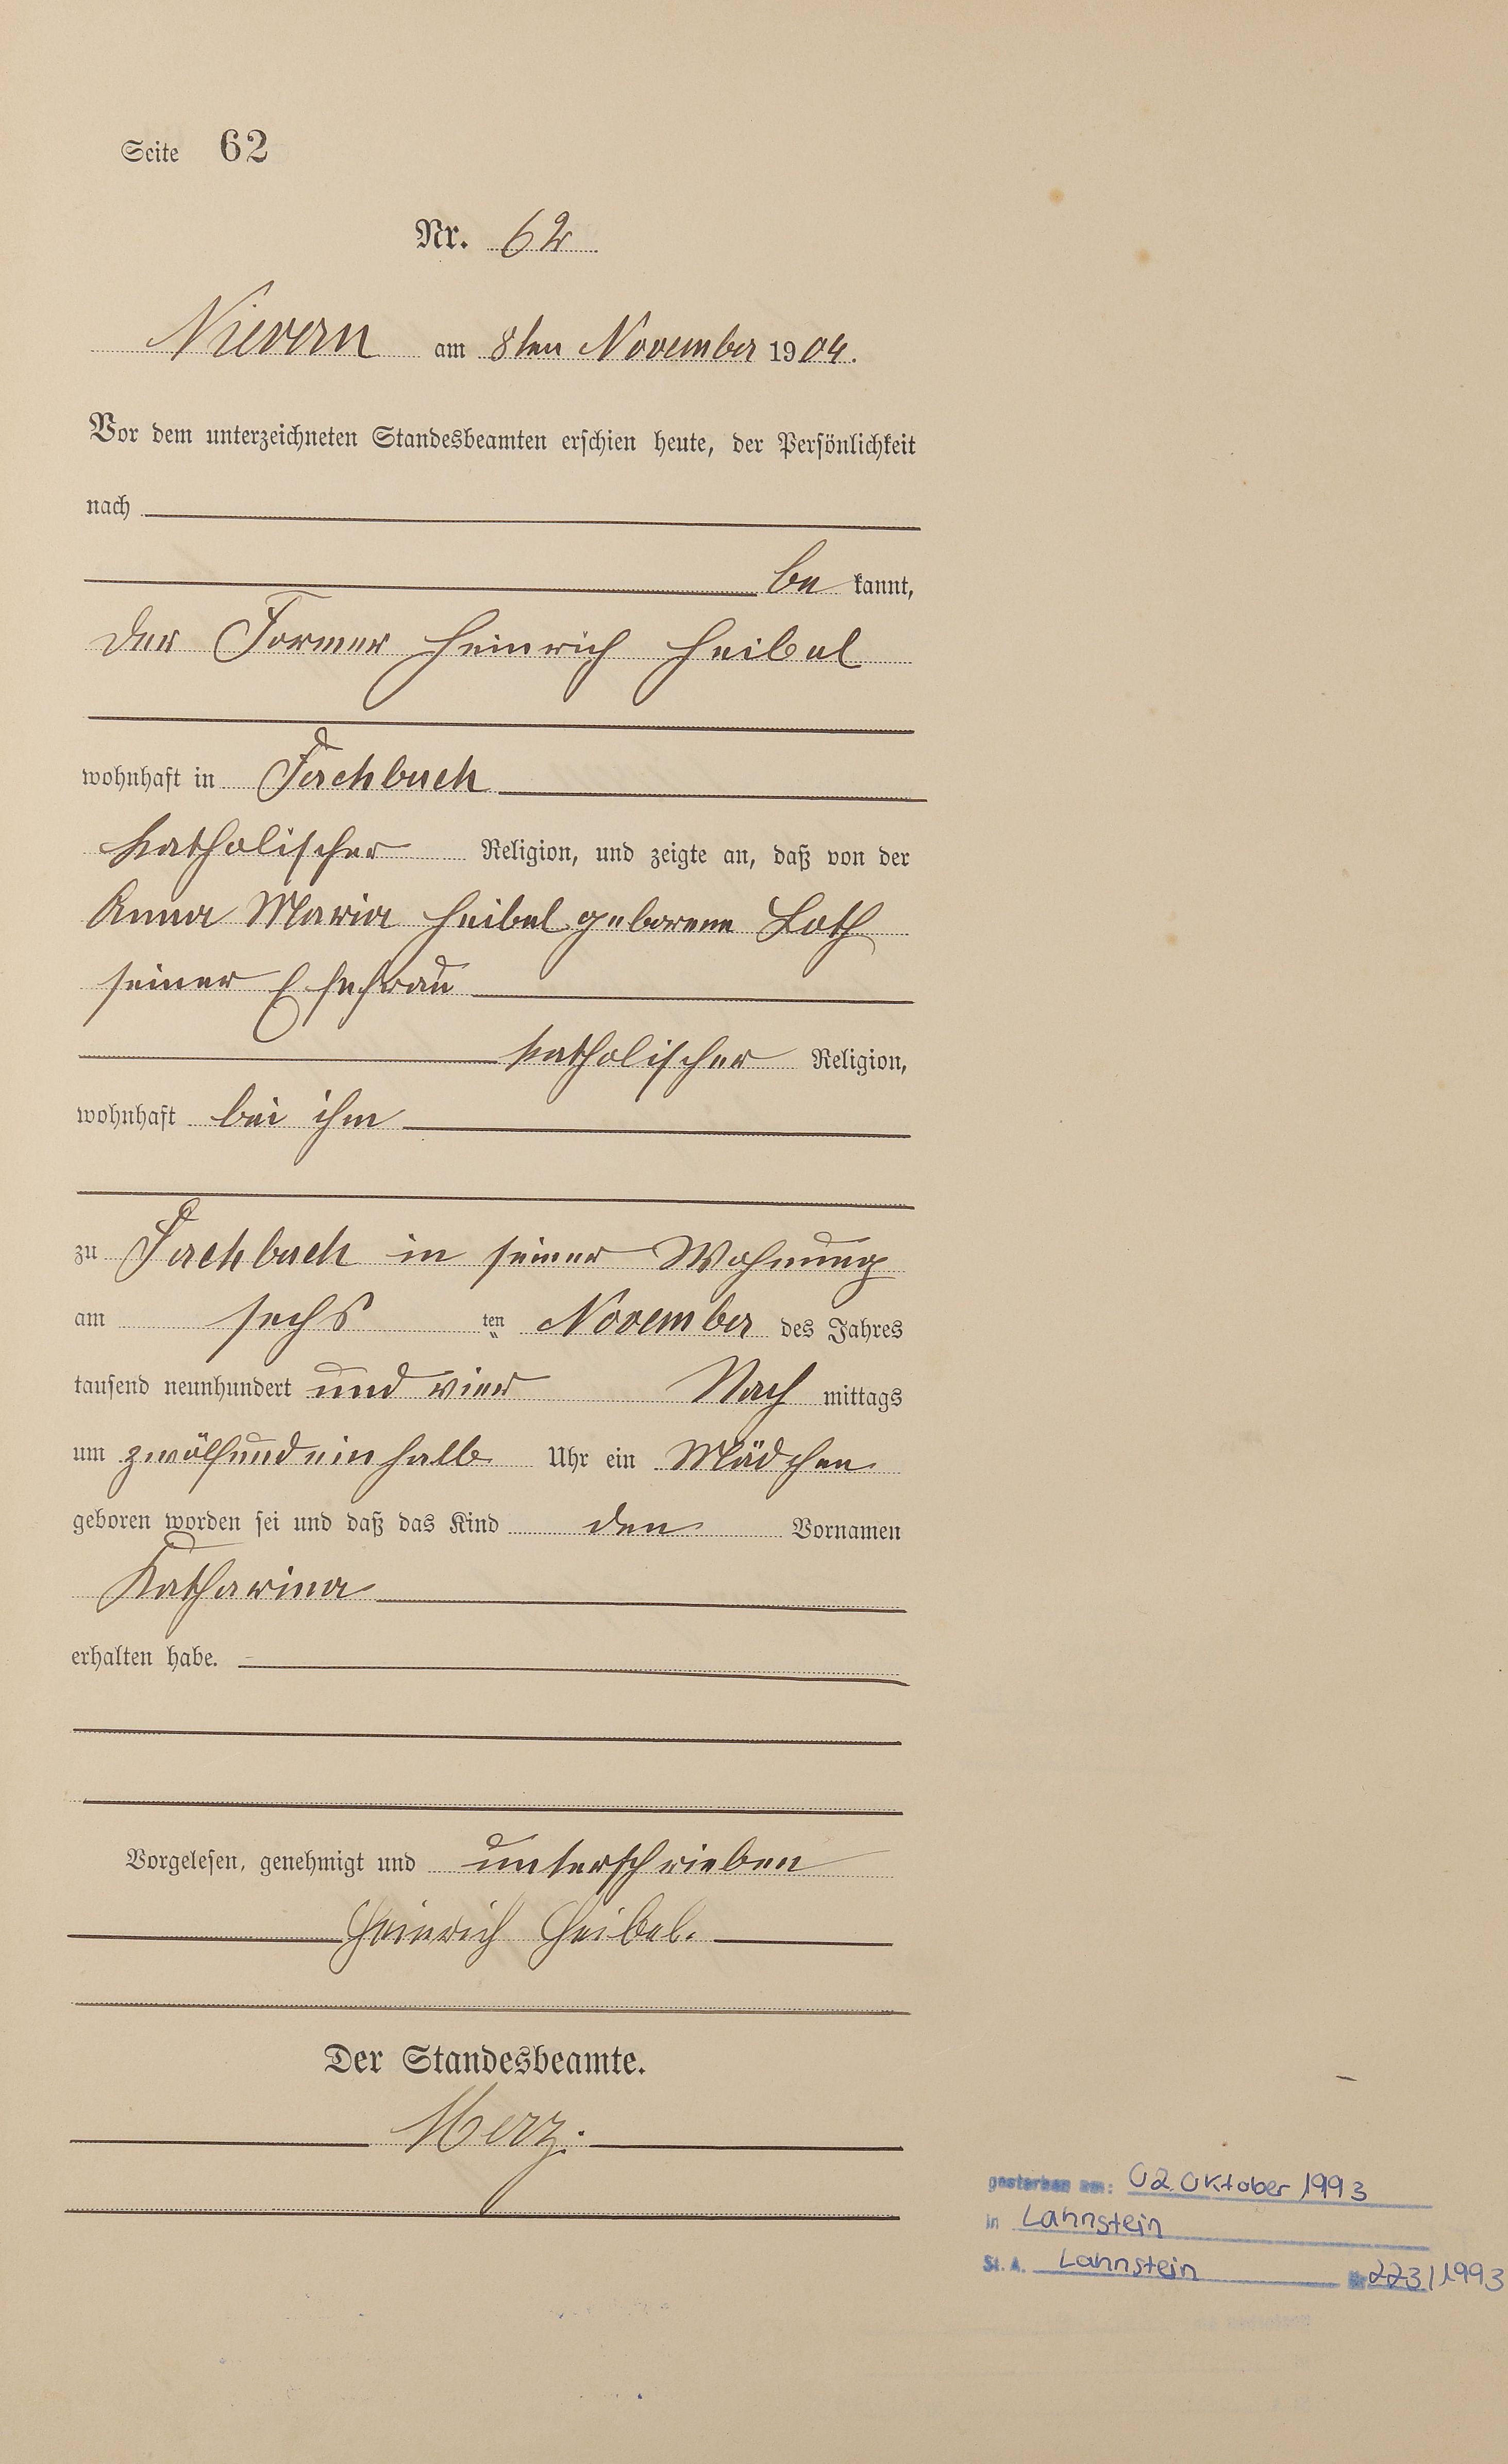 Seite 62
Nr. 62
Nievern am 8ten November 1904.
Vor dem unterzeichneten Standesbeamten erschien heute, der Persönlichkeit
nach
be kannt,
der Former Heinrich Heibel
wohnhaft in Fachbach
katholischer Religion, und zeigte an, daß von der
Anna Maria Heibel geborene Loth
seiner Ehefrau
katholischer Religion,
wohnhaft bei ihm
zu Fachbach in seiner Wohnung
am sechs ten November des Jahres
tausend neunhundert und vier Nach mittags
um zwölfundeinhalb Uhr ein Mädchen
geboren worden sei und daß das Kind den Vornamen
Katharina
erhalten habe.
Vorgelesen, genehmigt und unterschrieben
Heinrich Heibel.
Der Standesbeamte.
Merz.
gestorben am: 02 Oktober 1993
in Lahnstein
St. A. Lahnstein Nr 223/1993